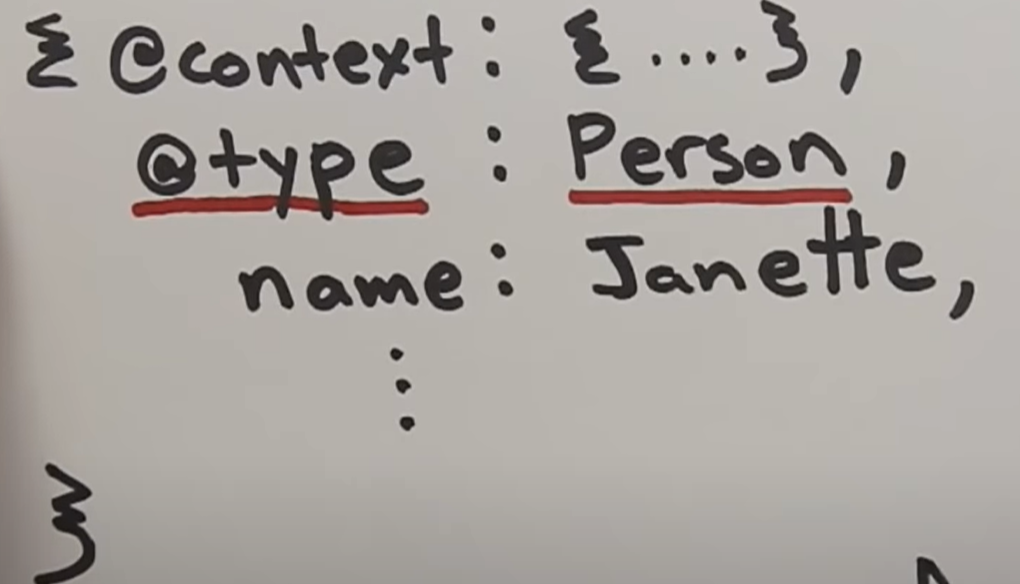 { @context : { .... } ,
@type : Person ,
name : Janette,
⋮
}